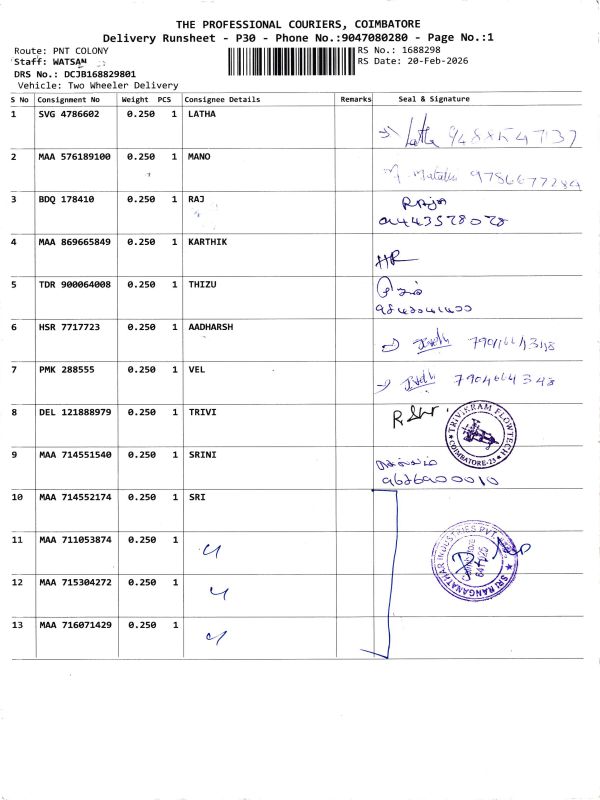 THE PROFESSIONAL COURIERS, COIMBATORE
Delivery Runsheet - P30 - Phone No.:9047080280 - Page No.:1
Route: PNT COLONY
RS No.: 1688298
Staff: WATSAN
RS Date: 20-Feb-2026
DRS No.: DCJB168829801
Vehicle: Two Wheeler Delivery
S No Consignment No Weight PCS Consignee Details Remarks Seal & Signature
1 SVG 4786602 0.250 1 LATHA
Latha
2 MAA 576189100 0.250 1 MANO
9786677284
3 BDQ 178410 0.250 1 RAJ
9443578078
4 MAA 869665849 0.250 1 KARTHIK
HR
5 TDR 900064008 0.250 1 THIZU
6 HSR 7717723 0.250 1 AADHARSH
7904664348
7 PMK 288555 0.250 1 VEL
7904664348
8 DEL 121888979 0.250 1 TRIVI
TRIVIKRAM FLOWTECH
COIMBATORE-25
9 MAA 714551540 0.250 1 SRINI
9626900010
10 MAA 714552174 0.250 1 SRI
11 MAA 711053874 0.250 1
SRI RANGANATHAR INDUSTRIES PVT.
12 MAA 715304272 0.250 1
13 MAA 716071429 0.250 1